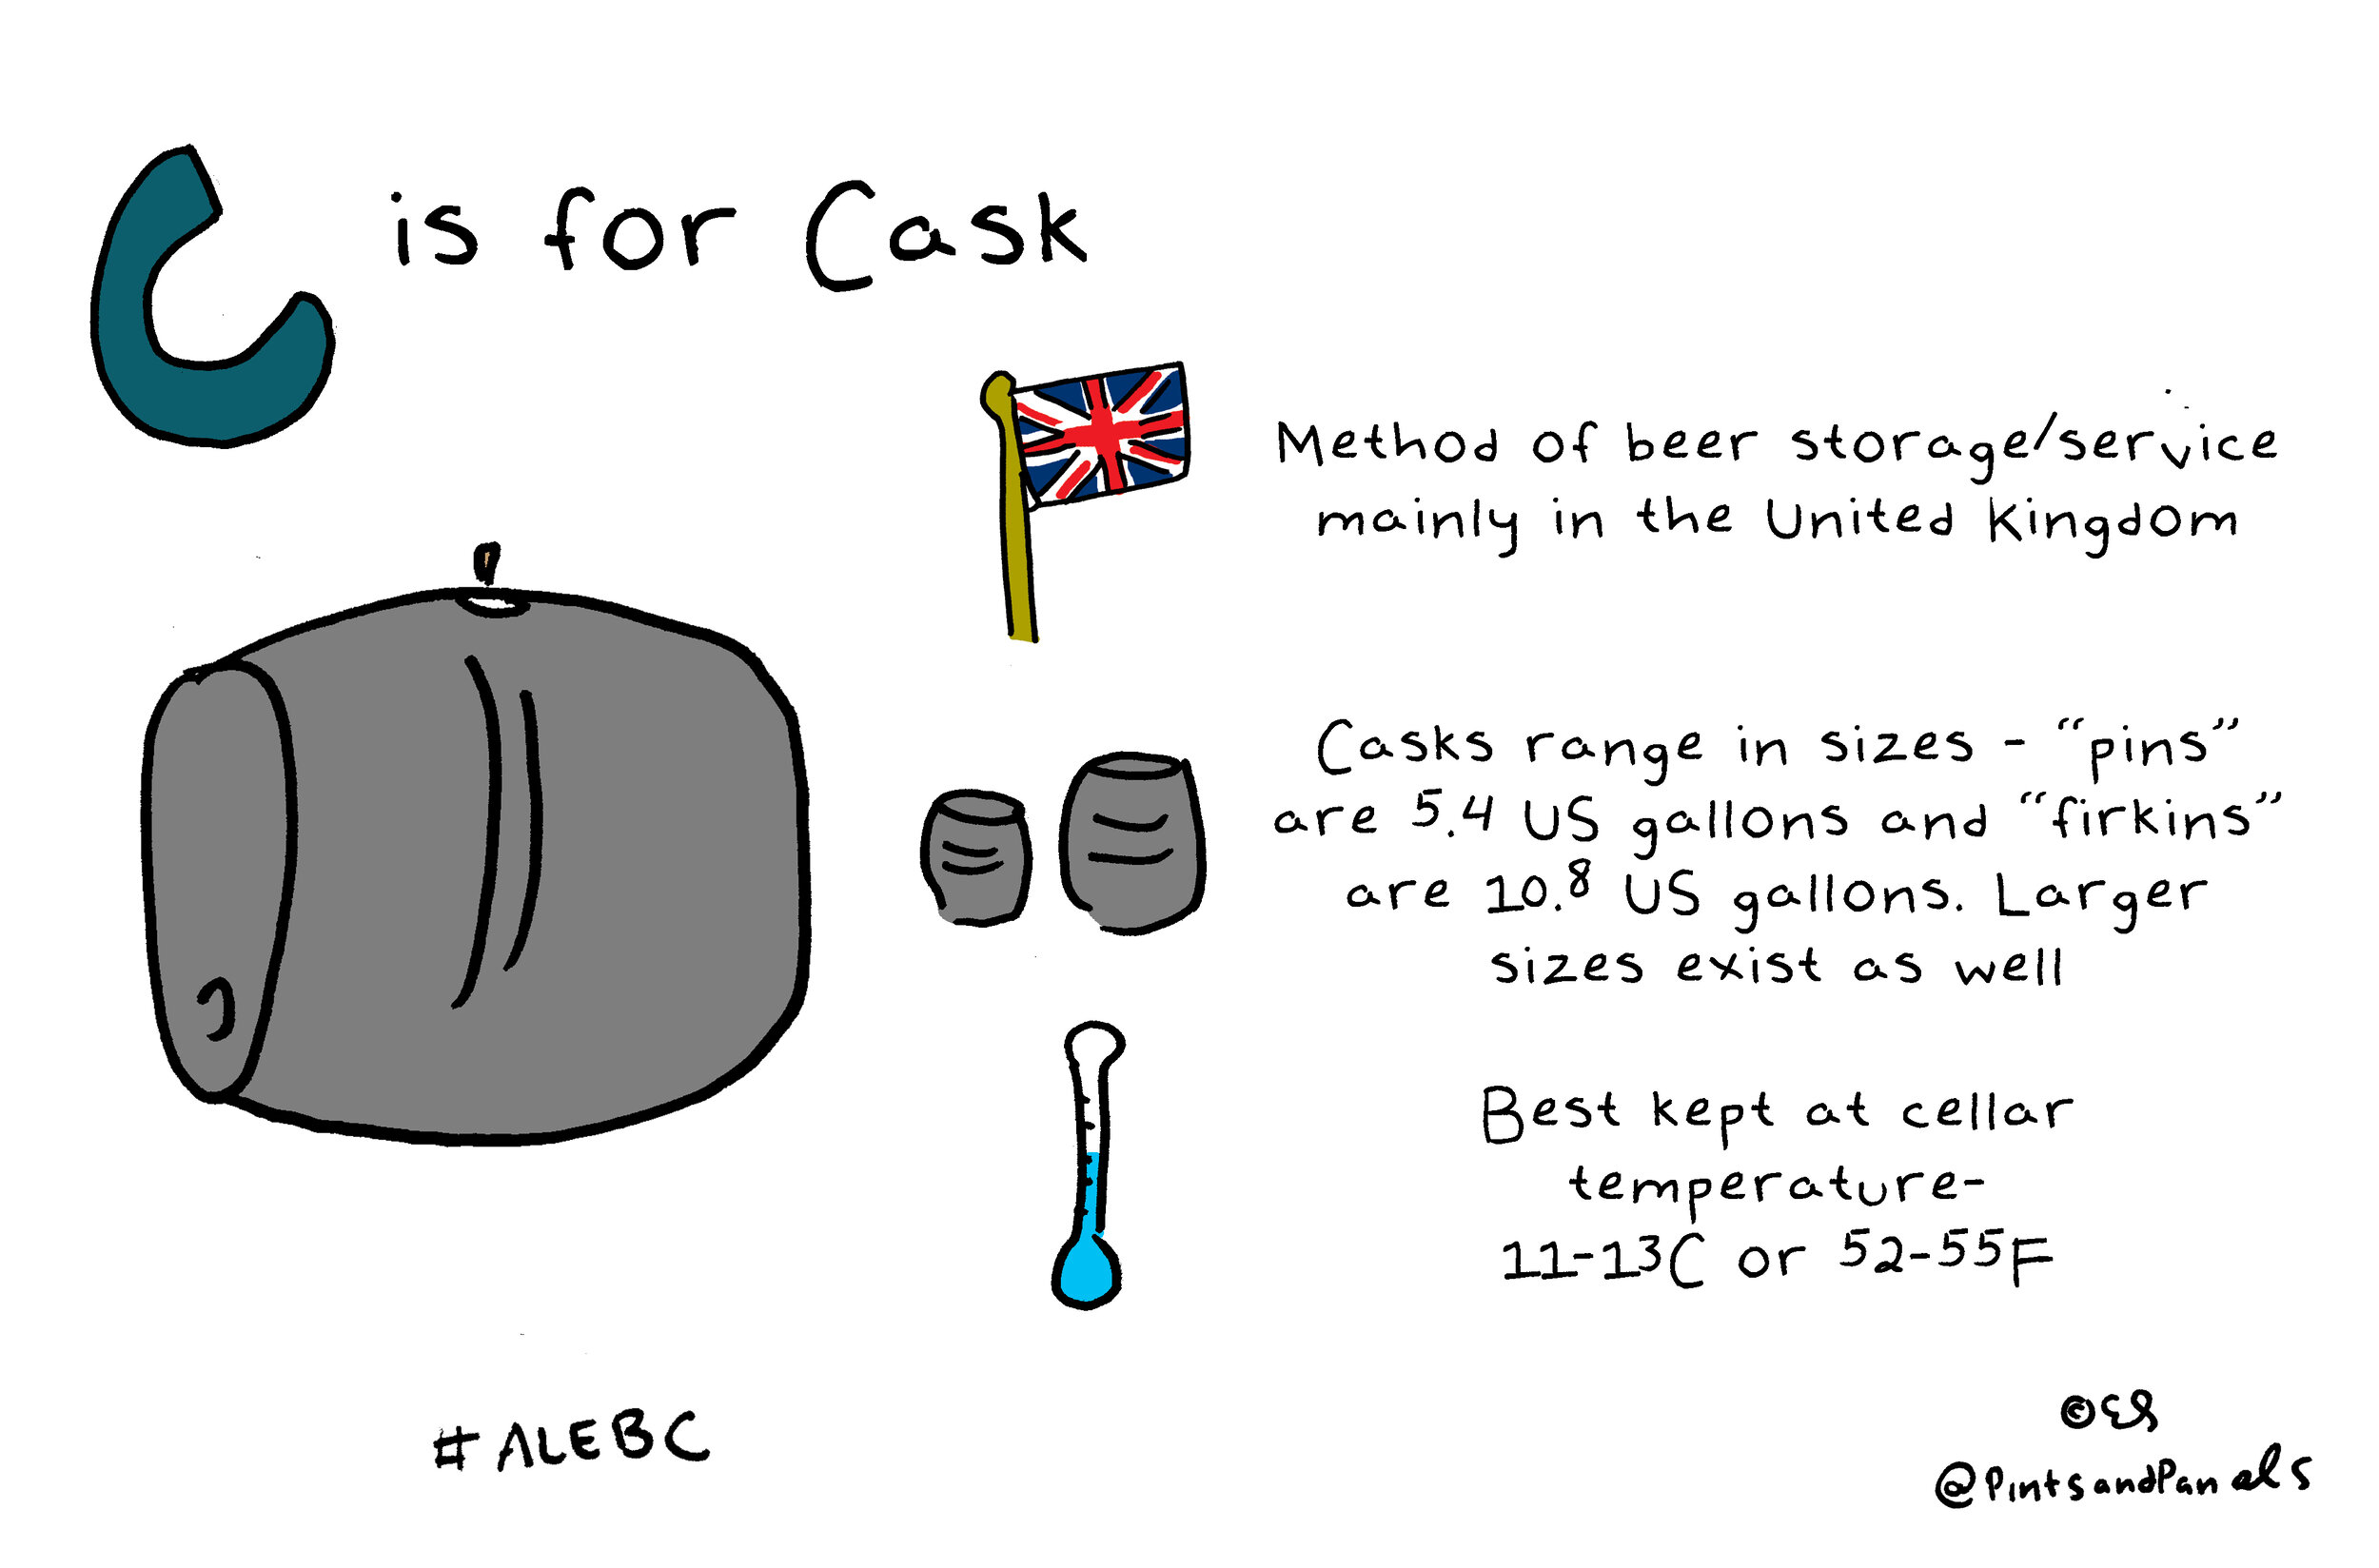 C is for Cask
Method of beer storage/service
mainly in the United Kingdom
Casks range in sizes - "pins"
are 5.4 US gallons and "firkins"
are 10.8 US gallons. Larger
sizes exist as well
Best kept at cellar
temperature-
11-13C or 52-55F
#ALEBC
©ES
@PintsandPanels